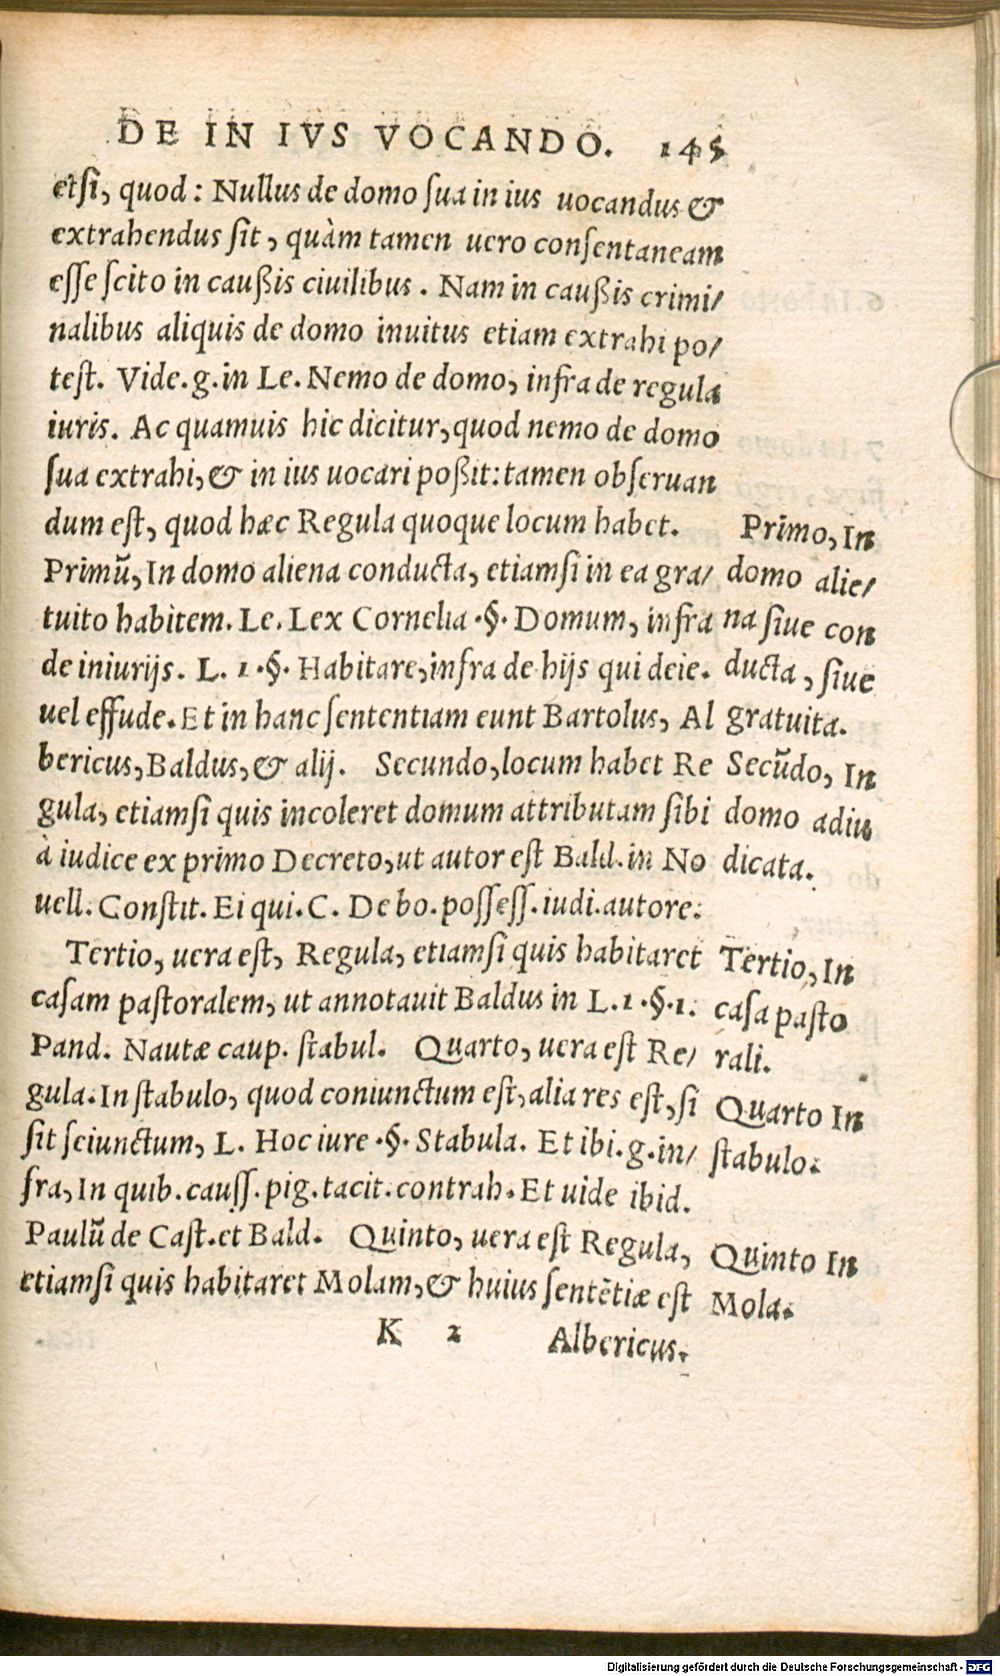 DE IN IVS VOCANDO. 145
etſi, quod: Nullus de domo ſua in ius uocandus &
extrahendus ſit, quàm tamen uero conſentaneam
eſſe ſcito in cauſsis ciuilibus. Nam in cauſsis crimi/
nalibus aliquis de domo inuitus etiam extrahi po/
teſt. Vide.g.in Le. Nemo de domo, infra de regula
iuris. Ac quamuis hic dicitur, quod nemo de domo
ſua extrahi, & in ius uocari poſsit: tamen obſeruan
dum eſt, quod hæc Regula quoque locum habet.
Primũ, In domo aliena conducta, etiamſi in ea gra/
tuito habitem. Le. Lex Cornelia .§. Domum, infra
de iniurijs. L. 1 .§. Habitare, infra de hijs qui deie.
uel effude. Et in hanc ſententiam eunt Bartolus, Al
bericus, Baldus, & alij. Secundo, locum habet Re
gula, etiamſi quis incoleret domum attributam ſibi
à iudice ex primo Decreto, ut autor eſt Bald. in No
uell. Conſtit. Ei qui. C. De bo. poſſeſſ. iudi. autore.
Tertio, uera eſt, Regula, etiamſi quis habitaret
caſam paſtoralem, ut annotauit Baldus in L. 1 .§. 1.
Pand. Nautæ caup. ſtabul. Quarto, uera eſt Re/
gula. In ſtabulo, quod coniunctum eſt, alia res eſt, ſi
ſit ſciunctum, L. Hoc iure .§. Stabula. Et ibi.g.in/
fra, In quib. cauſſ. pig. tacit. contrah. Et uide ibid.
Paulũ de Caſt. et Bald. Quinto, uera eſt Regula,
etiamſi quis habitaret Molam, & huius ſentẽtiæ eſt
K 2 Albericus.
Primo, In
domo alie/
na ſiue con
ducta, ſiue
gratuita.
Secũdo, In
domo adiu
dicata.
Tertio, In
caſa paſto
rali.
Quarto In
ſtabulo.
Quinto In
Mola.
Digitalisierung gefördert durch die Deutsche Forschungsgemeinschaft - DFG